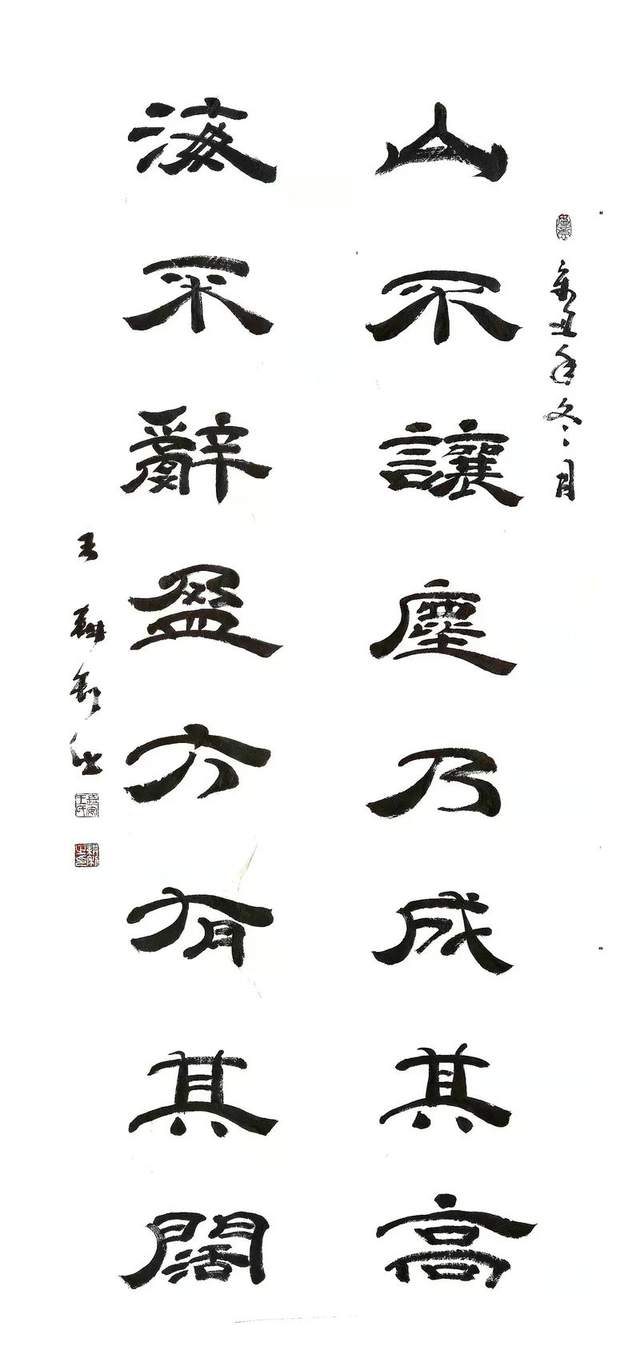 辛丑年冬月
山不讓塵乃成其高
海不辭盈方有其闊
王